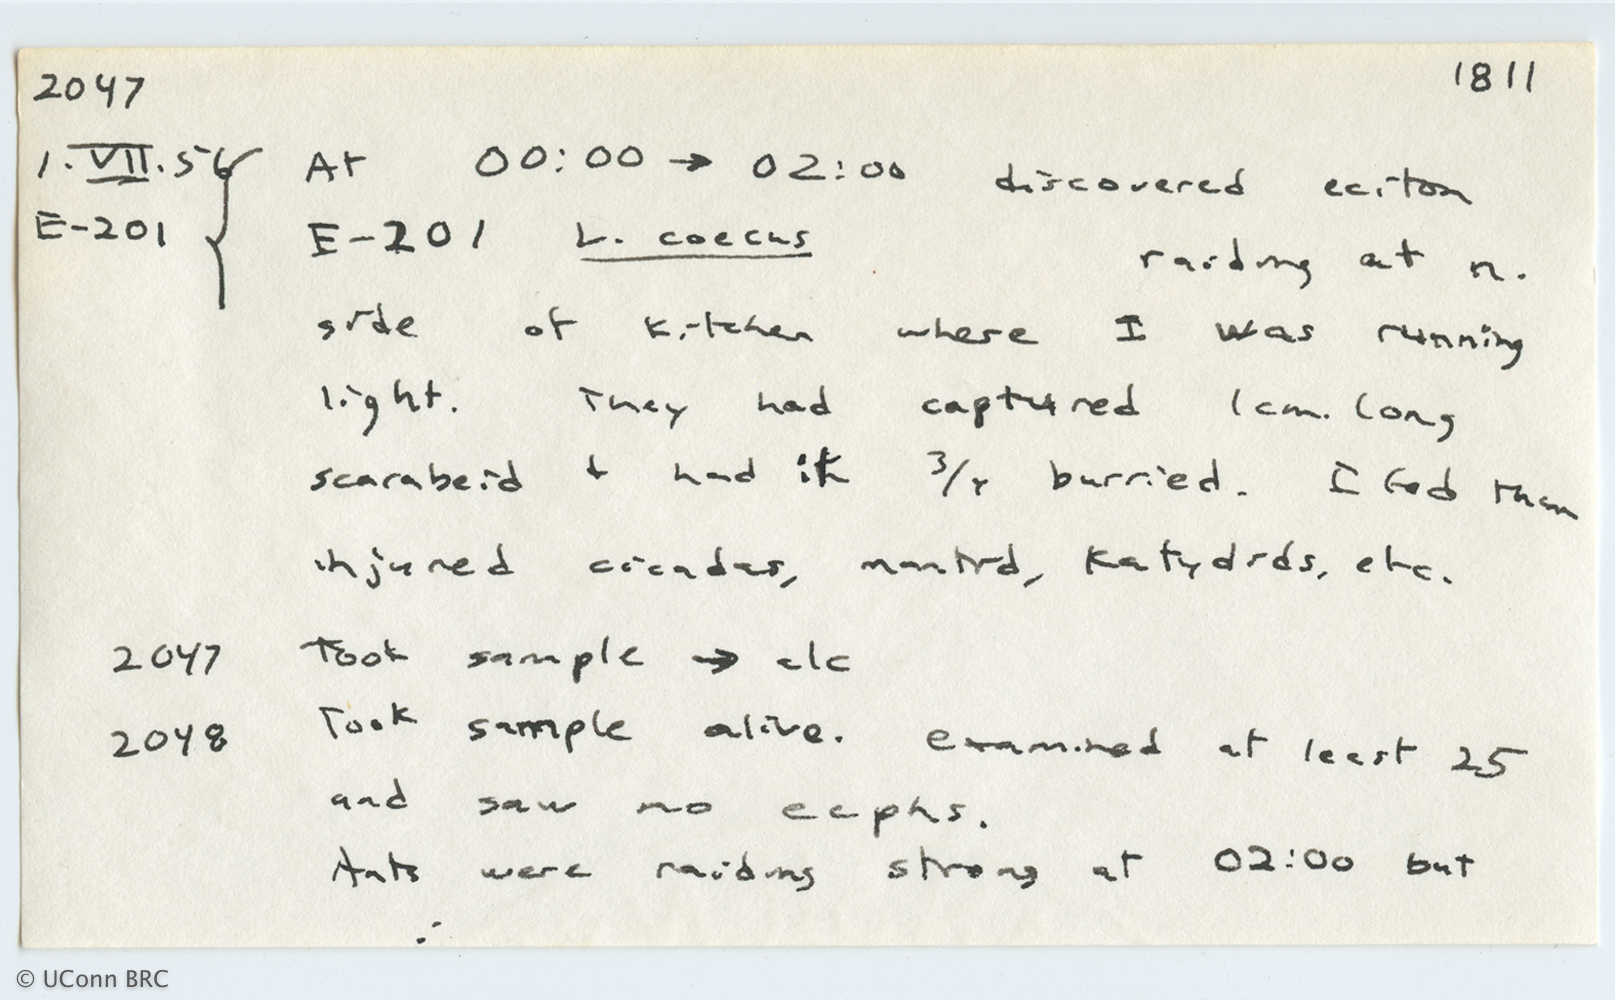 2047 1811
1.VII.56 At 00:00 → 02:00 discovered eciton
E-201 E-201 L. coecus raiding at n.
side of kitchen where I was running
light. They had captured 1cm. long
scarabeid + had it 3/4 burried. I fed them
injured cicadas, mantid, katydids, etc.
2047 Took sample → alc
2048 Took sample alive. examined at least 25
and saw no ecphs.
Ants were raiding strong at 02:00 but
© UConn BRC